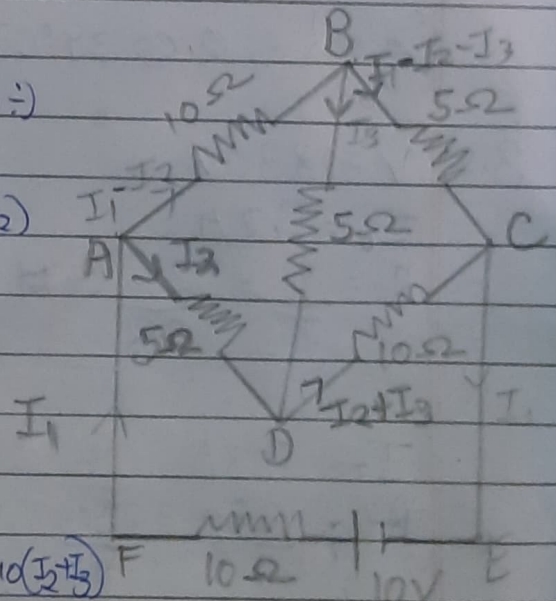 B
I₁-I₂-I₃
10Ω
5Ω
÷)
I₃
I₁-I₂
2)
A
I₂
5Ω
C
5Ω
10Ω
I₁
I₂+I₃
D
10(I₂+I₃)
F
10Ω
10V
E